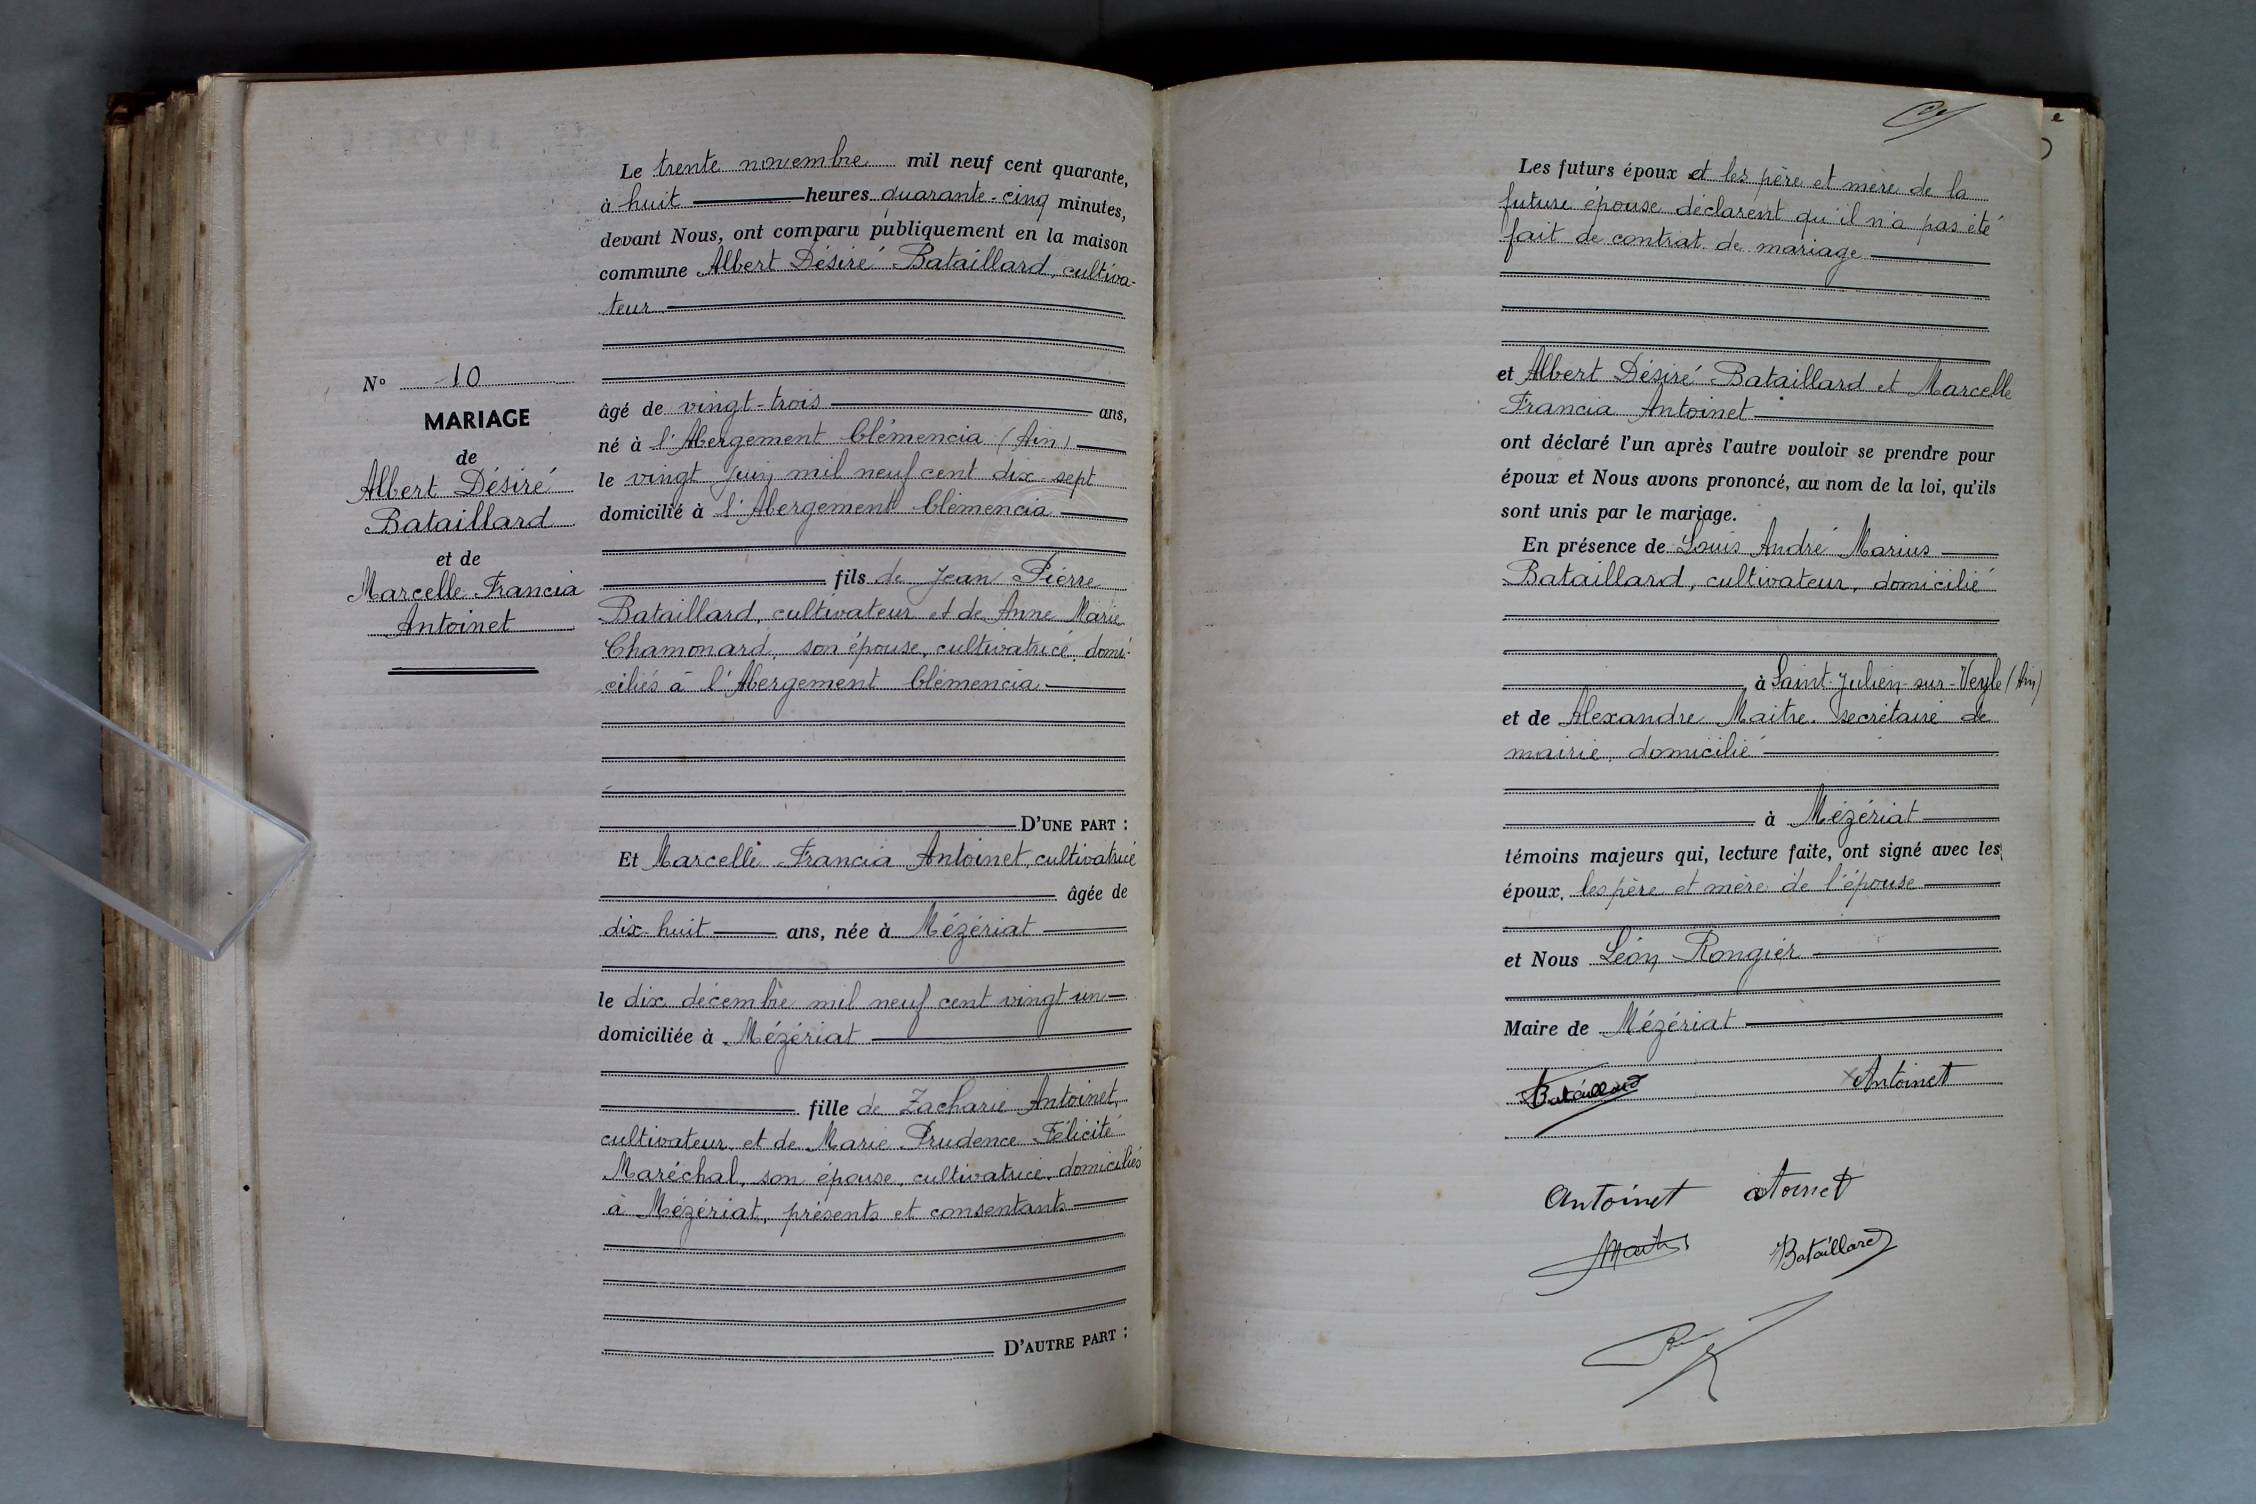 N° 10
MARIAGE
de
Albert Désiré
Bataillard
et de
Marcelle Francia
Antoinet
Le trente novembre mil neuf cent quarante,
à huit heures quarante-cinq minutes,
devant Nous, ont comparu publiquement en la maison
commune Albert Désiré Bataillard, cultiva-
teur
âgé de vingt-trois ans,
né à l'Abergement Clémencia (Ain)
le vingt juin mil neuf cent dix-sept
domicilié à l'Abergement Clémencia
fils de Jean Pierre
Bataillard, cultivateur et de Anne Marie
Chamonard, son épouse, cultivatrice, domi-
ciliés à l'Abergement Clémencia
D'UNE PART :
Et Marcelle Francia Antoinet, cultivatrice
âgée de
dix-huit ans, née à Mézériat
le dix décembre mil neuf cent vingt-un
domiciliée à Mézériat
fille de Zacharie Antoinet,
cultivateur, et de Marie Prudence Félicité
Maréchal, son épouse, cultivatrice, domiciliés
à Mézériat, présents et consentants
D'AUTRE PART :
Les futurs époux et les père et mère de la
future épouse déclarent qu'il n'a pas été
fait de contrat de mariage
et Albert Désiré Bataillard et Marcelle
Francia Antoinet
ont déclaré l'un après l'autre vouloir se prendre pour
époux et Nous avons prononcé, au nom de la loi, qu'ils
sont unis par le mariage.
En présence de Louis André Marius
Bataillard, cultivateur, domicilié
à Saint-Julien-sur-Veyle (Ain)
et de Alexandre Maitre, secrétaire de
mairie, domicilié
à Mézériat
témoins majeurs qui, lecture faite, ont signé avec les
époux, les père et mère de l'épouse
et Nous Léon Rongier
Maire de Mézériat
Bataillard Antoinet
Antoinet atoinet
Maitre Bataillard